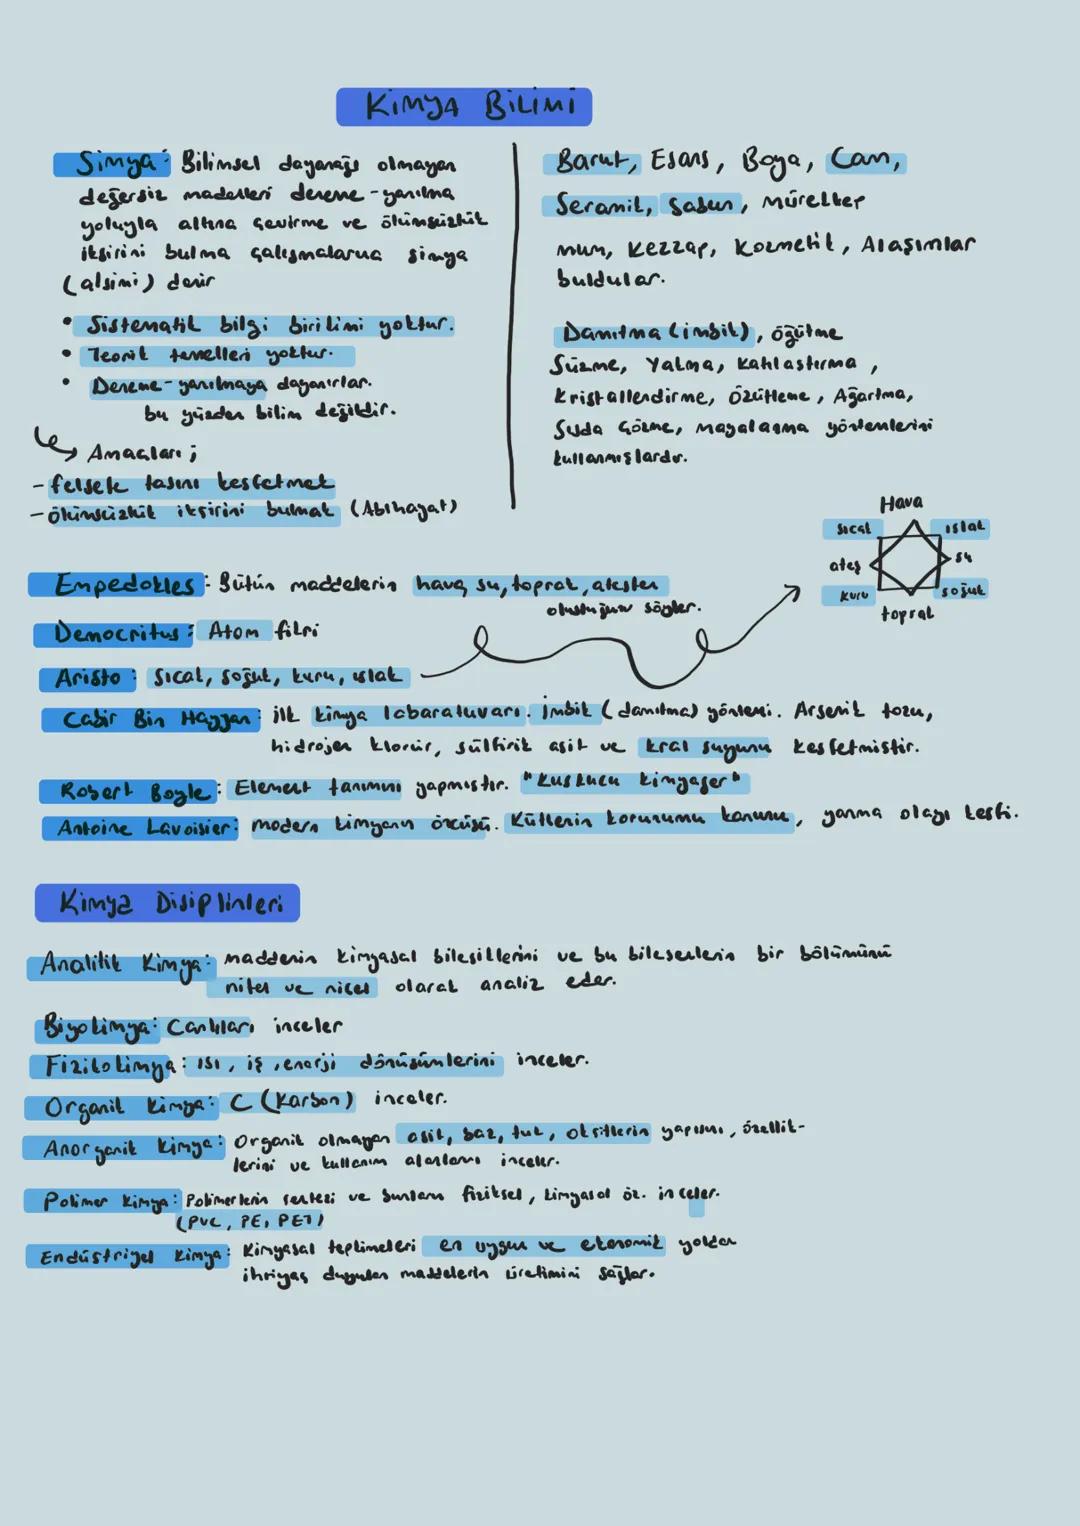 Kimya Bilimi
Simya: Bilimsel dayanağı olmayan
değersiz madelleri deneme-yanılma
yoluyla altına çevirme ve ölümsüzlük
iksirini bulma çalışmalarına simya
(alşimi) denir
• Sistematik bilgi birikimi yoktur.
• Teorik temelleri yoktur.
• Deneme-yanılmaya dayanırlar.
bu yüzden bilim değildir.
Amaçları;
- felsefe taşını keşfetmek
- ölümsüzlük iksirini bulmak (Abıhayat)
Barut, Esans, Boya, Cam,
Seramik, Sabun, mürekkep
mum, Kezzap, Kozmetik, Alaşımlar
buldular.
Damıtma (imbik), öğütme
Süzme, Yakma, Katılaştırma,
Kristallendirme, Özütleme, Ağartma,
Suda Çözme, Mayalanma yöntemlerini
kullanmışlardır.
Hava
sıcak ıslak
ateş su
kuru soğuk
toprak
Empedokles: Bütün maddelerin hava, su, toprak, ateşten
oluştuğunu söyler.
Democritus: Atom fikri
Aristo: Sıcak, soğuk, kuru, ıslak
Cabir Bin Hayyan: ilk kimya labaratuvarı. İmbik (damıtma) yöntemi. Arsenik tozu,
hidrojen klorür, sülfirik asit ve kral suyunu keşfetmiştir.
Robert Boyle: Element tanımını yapmıştır. "Kuşkucu kimyager"
Antoine Lavoisier: modern kimyanın öncüsü. Kütlenin korunumu kanunu, yanma olayı keşfi.
Kimya Disiplinleri
Analitik Kimya: maddenin kimyasal bileşiklerini ve bu bileşenlerin bir bölümünü
nitel ve nicel olarak analiz eder.
Biyokimya: Canlıları inceler
Fizikokimya: ısı, iş, enerji dönüşümlerini inceler.
Organik kimya: C (Karbon) inceler.
Anorganik kimya: Organik olmayan asit, baz, tuz, oksitlerin yapısını, özellik-
lerini ve kullanım alanlarını inceler.
Polimer Kimya: Polimerlerin sentezi ve bunların fiziksel, kimyasal öz. inceler.
(PVC, PE, PET)
Endüstriyel Kimya: Kimyasal tepkimeleri en uygun ve ekonomik yoldan
ihtiyaç duyulan maddelerin üretimini sağlar.